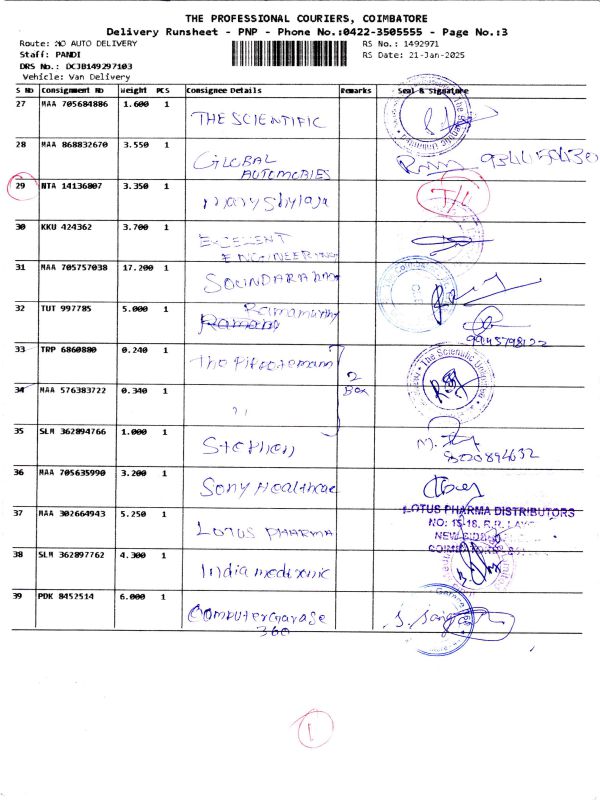 THE PROFESSIONAL COURIERS, COIMBATORE
Delivery Runsheet - PNP - Phone No.:0422-3505555 - Page No.:3
Route: NO AUTO DELIVERY
RS No.: 1492971
Staff: PANDI
RS Date: 21-Jan-2025
DRS No.: DCJB149297103
Vehicle: Van Delivery
S No Consignment No Weight PCS Consignee Details Remarks Seal & Signature
27 MAA 705684886 1.600 1
THE SCIENTIFIC
28 MAA 868832670 3.550 1
GLOBAL
AUTOMOBIES
29 NTA 14136807 3.350 1
30 KKU 424362 3.700 1
EXCELENT
ENGINEERING
31 MAA 705757038 17.200 1
32 TUT 997785 5.000 1
Ramamurthy
33 TRP 6860880 0.240 1
The Scientific
34 MAA 576383722 0.340 1
2
Box
"
35 SLM 362894766 1.000 1
Stephen
36 MAA 705635990 3.200 1
Sony Healthcae
37 MAA 302664943 5.250 1
LOTUS PHARMA DISTRIBUTORS
NO: 15-16,
LOTUS PHARMA
38 SLM 362897762 4.300 1
39 PDK 8452514 6.000 1
ComputerGarase
360
1